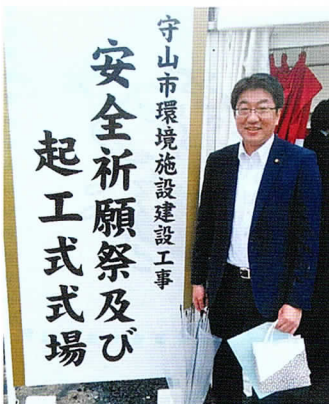 守山市環境施設建設工事
安全祈願祭及び
起工式式場